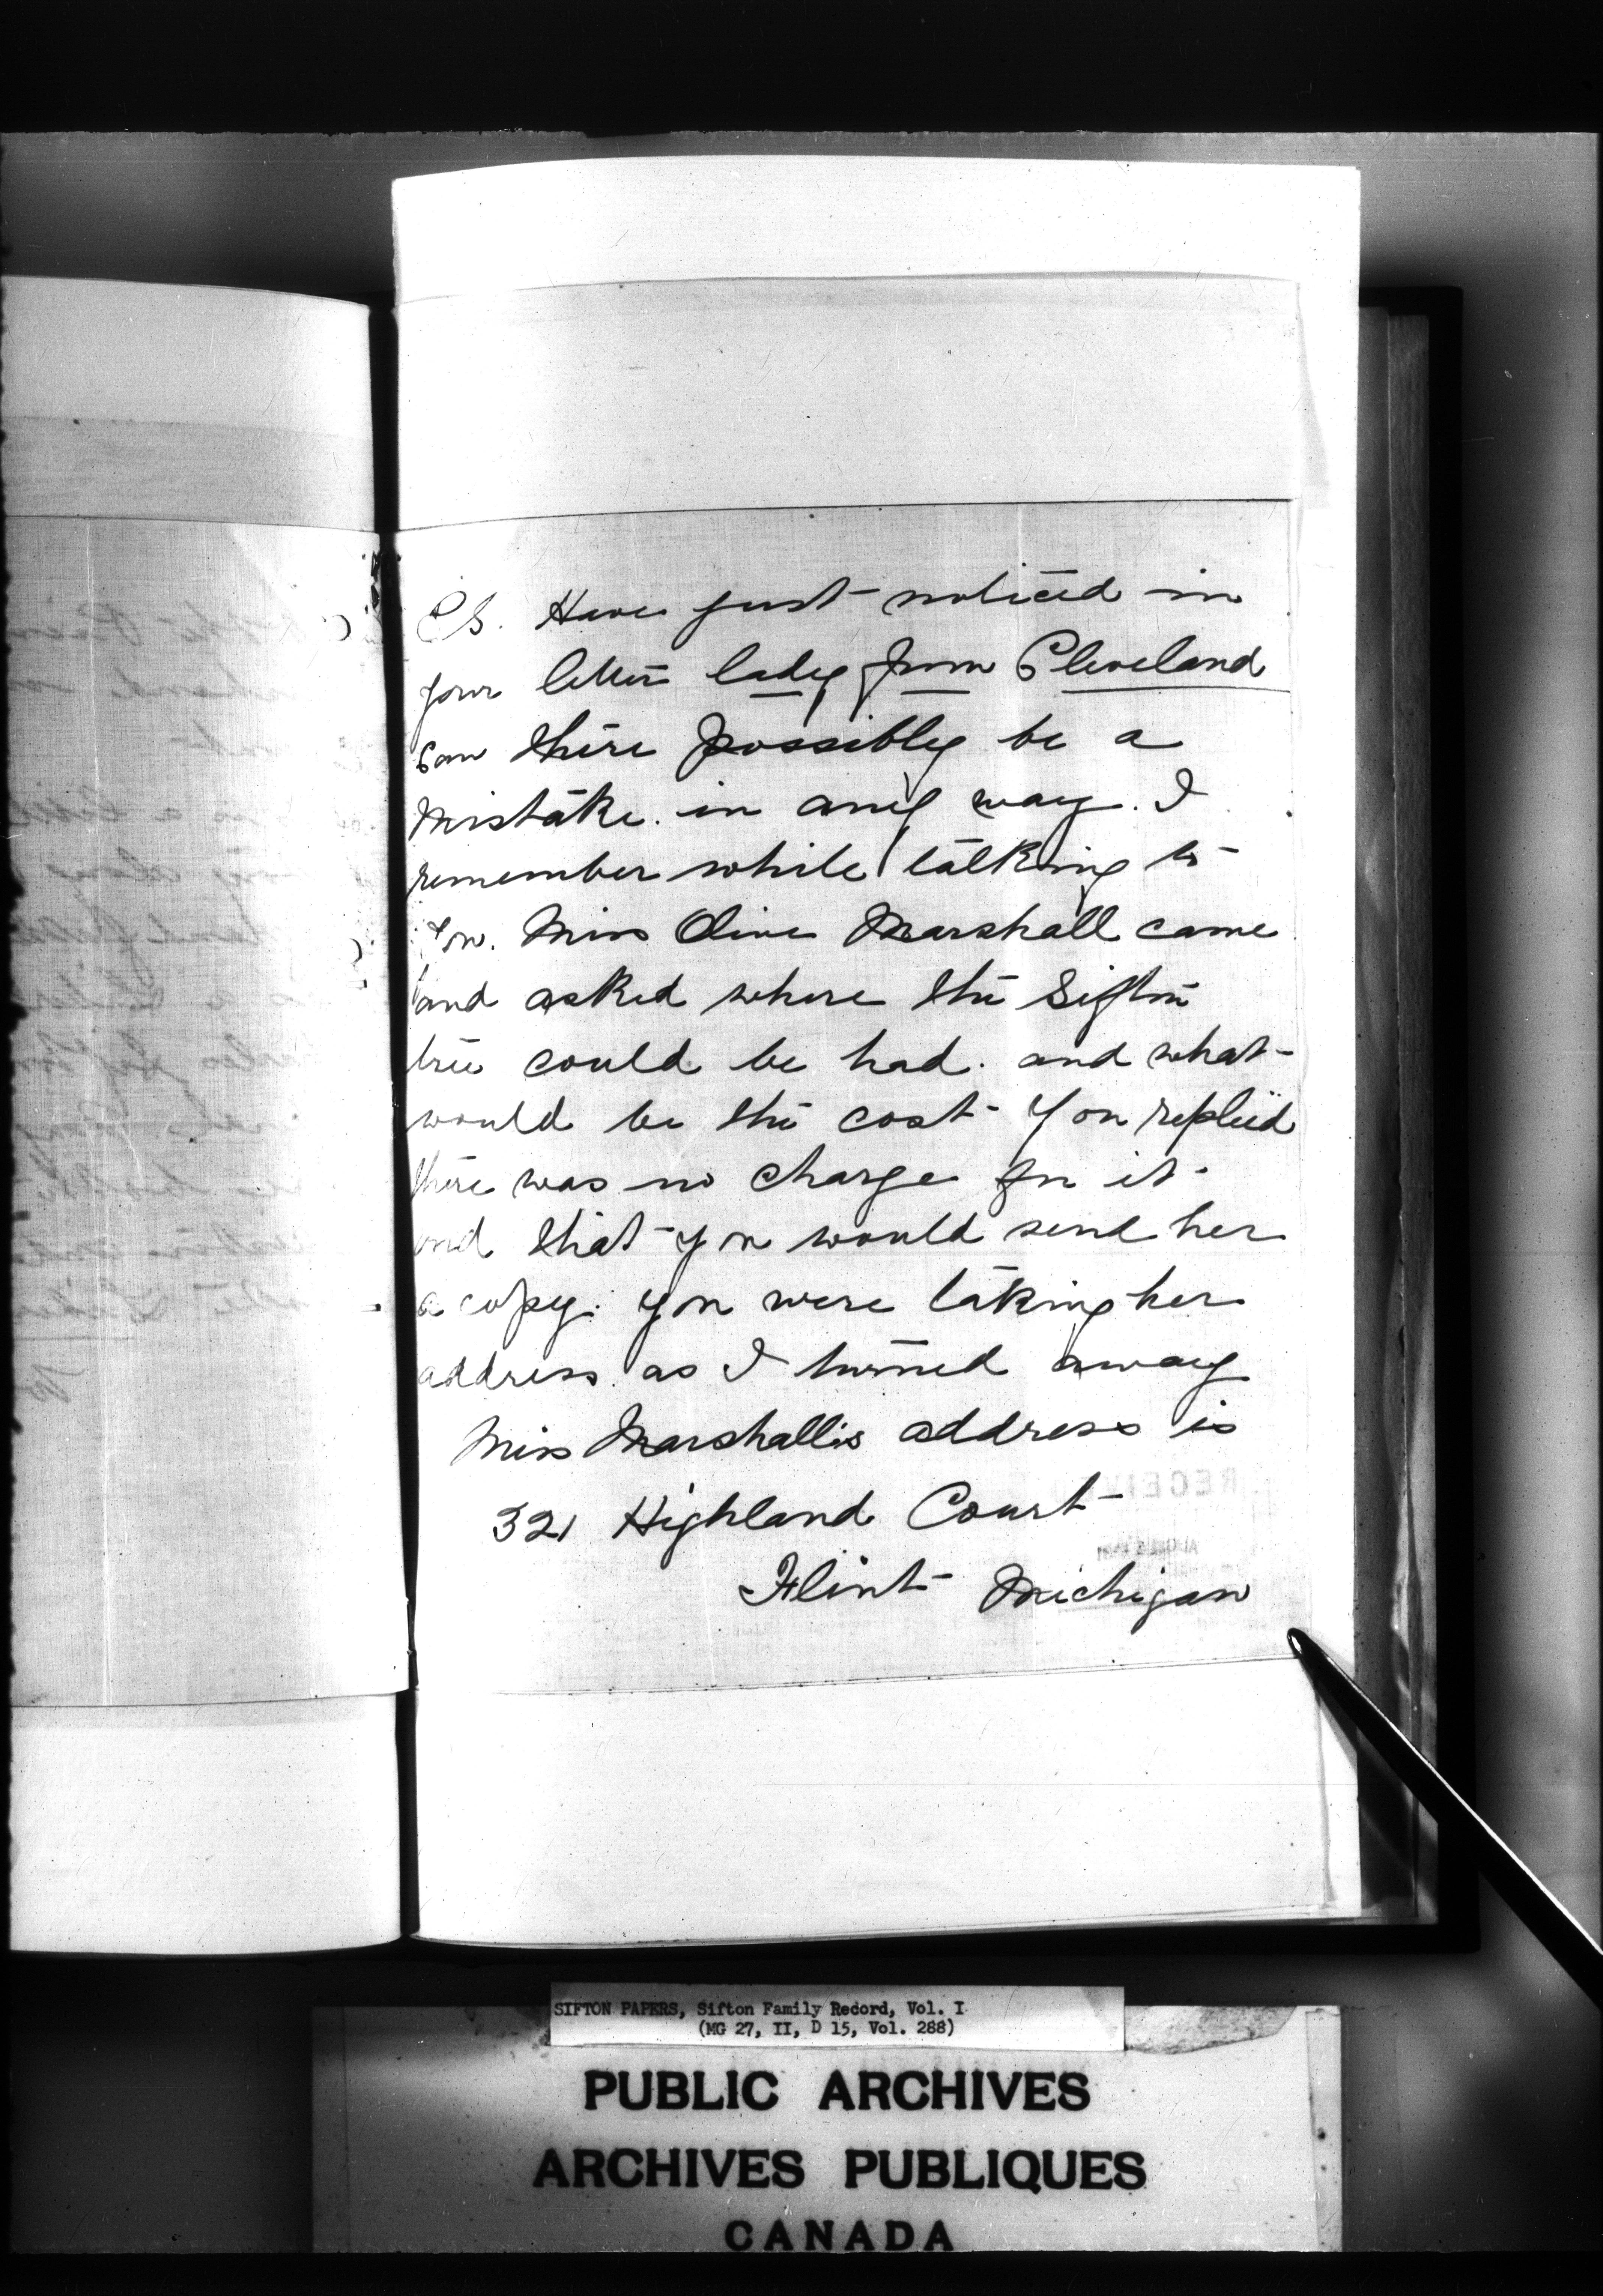 P.S. Have just noticed in
your letter lady from Cleveland
Can there possibly be a
mistake. in any way. I
remember while talking to
you. Miss Olive Marshall came
and asked where the Sifton
tree could be had. and what
would be the cost You replied
there was no charge for it
and that you would send her
a copy. you were taking her
address as I turned away
Miss Marshall's address is
321 Highland Court
Flint Michigan
SIFTON PAPERS, Sifton Family Record, Vol. I
(MG 27, II, D 15, Vol. 288)
PUBLIC ARCHIVES
ARCHIVES PUBLIQUES
CANADA